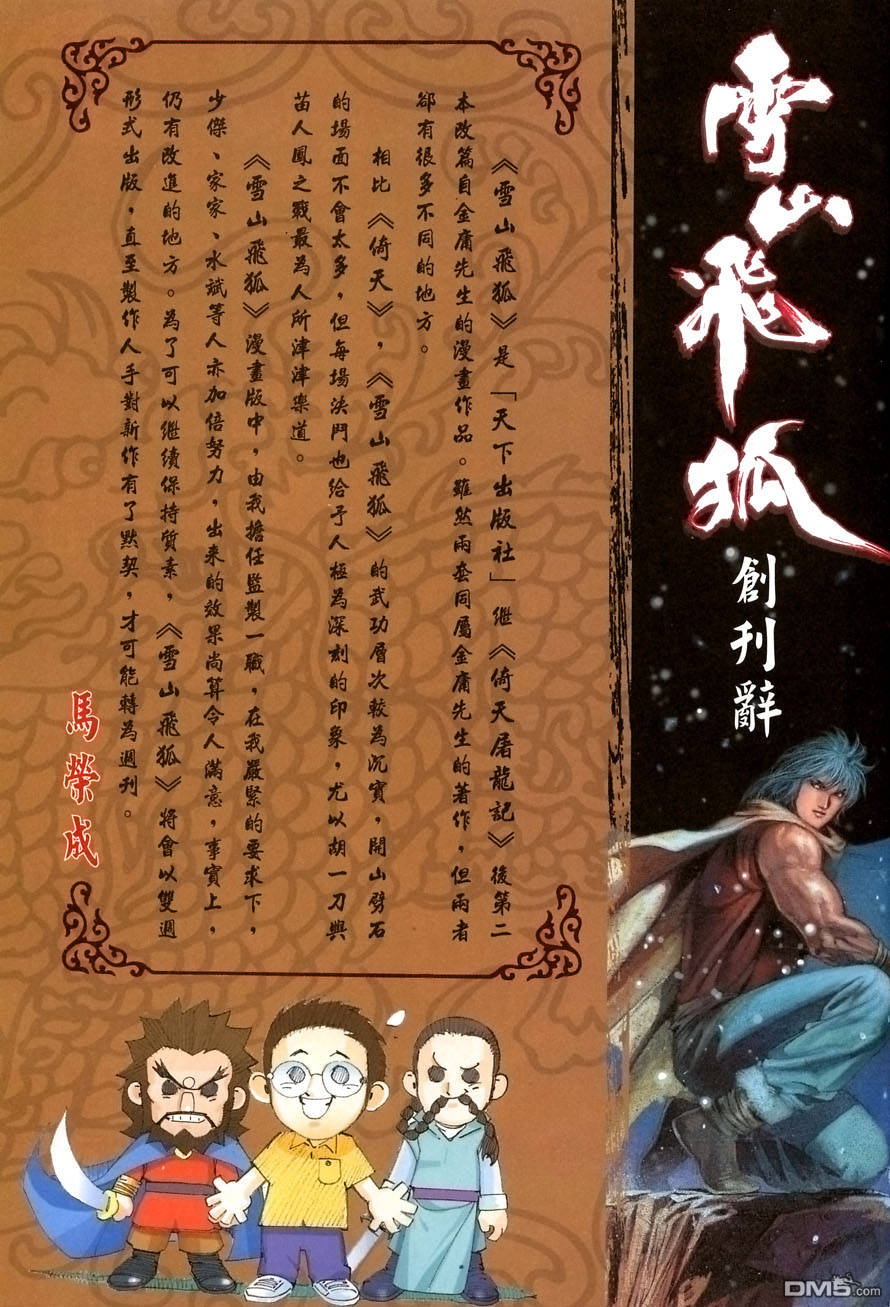 雪山飛狐
創刊辭
《雪山飛狐》是「天下出版社」繼《倚天屠龍記》後第二
本改篇自金庸先生的漫畫作品。雖然兩套同屬金庸先生的著作，但兩者
卻有很多不同的地方。
相比《倚天》，《雪山飛狐》的武功層次較為沉實，開山劈石
的場面不會太多，但每場決鬥也給予人極為深刻的印象，尤以胡一刀與
苗人鳳之戰最為人所津津樂道。
《雪山飛狐》漫畫版中，由我擔任監製一職，在我嚴緊的要求下，
少傑、家家、水斌等人亦加倍努力，出來的效果尚算令人滿意，事實上，
仍有改進的地方。為了可以繼續保持質素，《雪山飛狐》將會以雙週
形式出版，直至製作人手對新作有了默契，才可能轉為週刊。
馬榮成
DM5.com